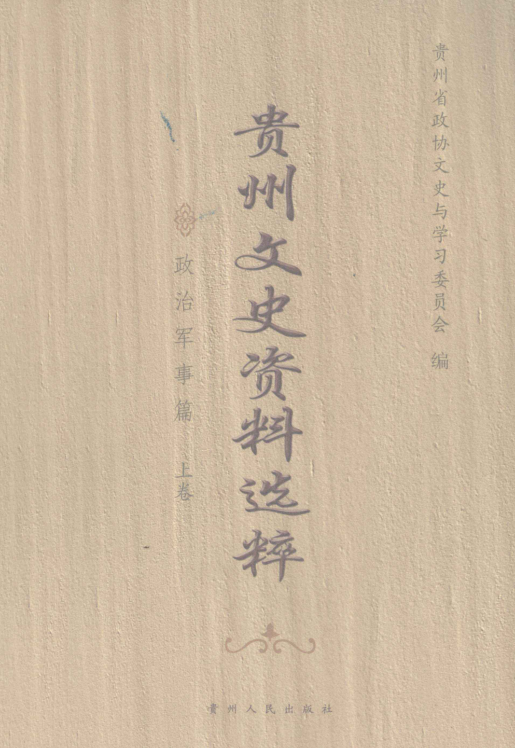 贵州省政协文史与学习委员会 编
贵州文史资料选粹
政治军事篇 上卷
贵州人民出版社